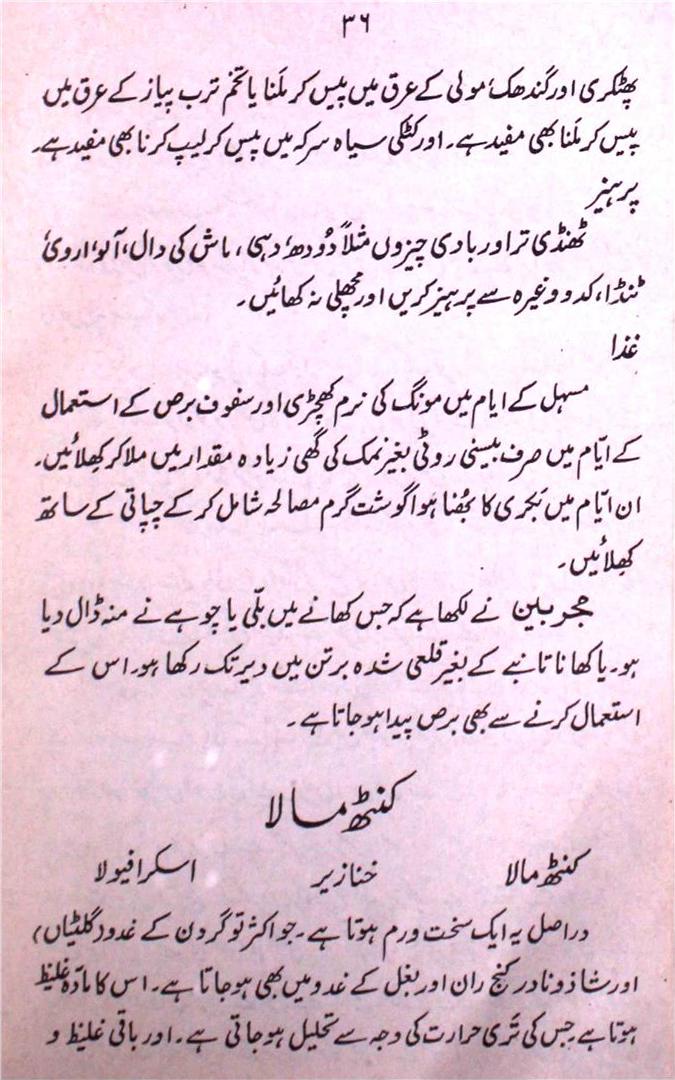 ۳۶
پھٹکری اور گندھک، مولی کے عرق میں پیس کر مَلنا یا تخم ترب پیاز کے عرق میں
پیس کر مَلنا بھی مفید ہے۔ اور کٹکی سیاہ سرکہ میں پیس کر لیپ کرنا بھی مفید ہے۔
پرہیز
ٹھنڈی تر اور بادی چیزوں مثلاً دُودھ، دہی، ماش کی دال، آلو، اروی،
ٹنڈا، کدو وغیرہ سے پرہیز کریں اور مچھلی نہ کھائیں۔
غذا
مسہل کے ایام میں مونگ کی نرم کھچڑی اور سفوف برص کے استعمال
کے ایّام میں صرف بیسنی روٹی بغیر نمک کی گھی زیادہ مقدار میں ملا کر کھلائیں۔
ان ایّام میں بَکری کا بُھنا ہوا گوشت گرم مصالحہ شامل کر کے چپاتی کے ساتھ
کھلائیں۔
مجربین نے لکھا ہے کہ جس کھانے میں بلّی یا چوہے نے منہ ڈال دیا
ہو۔ یا کھانا تانبے کے بغیر قلعی شدہ برتن میں دیر تک رکھا ہو۔ اس کے
استعمال کرنے سے بھی برص پیدا ہو جاتا ہے۔
کنٹھ مالا
کنٹھ مالا خنازیر اسکرافیولا
دراصل یہ ایک سخت ورم ہوتا ہے۔ جو اکثر تو گردن کے غدود گلٹیاں)
اور شاذ و نادر کنج ران اور بغل کے غدو میں بھی ہو جاتا ہے۔ اس کا مادّہ غلیظ
ہوتا ہے جس کی تَری حرارت کی وجہ سے تحلیل ہو جاتی ہے۔ اور باقی غلیظ و